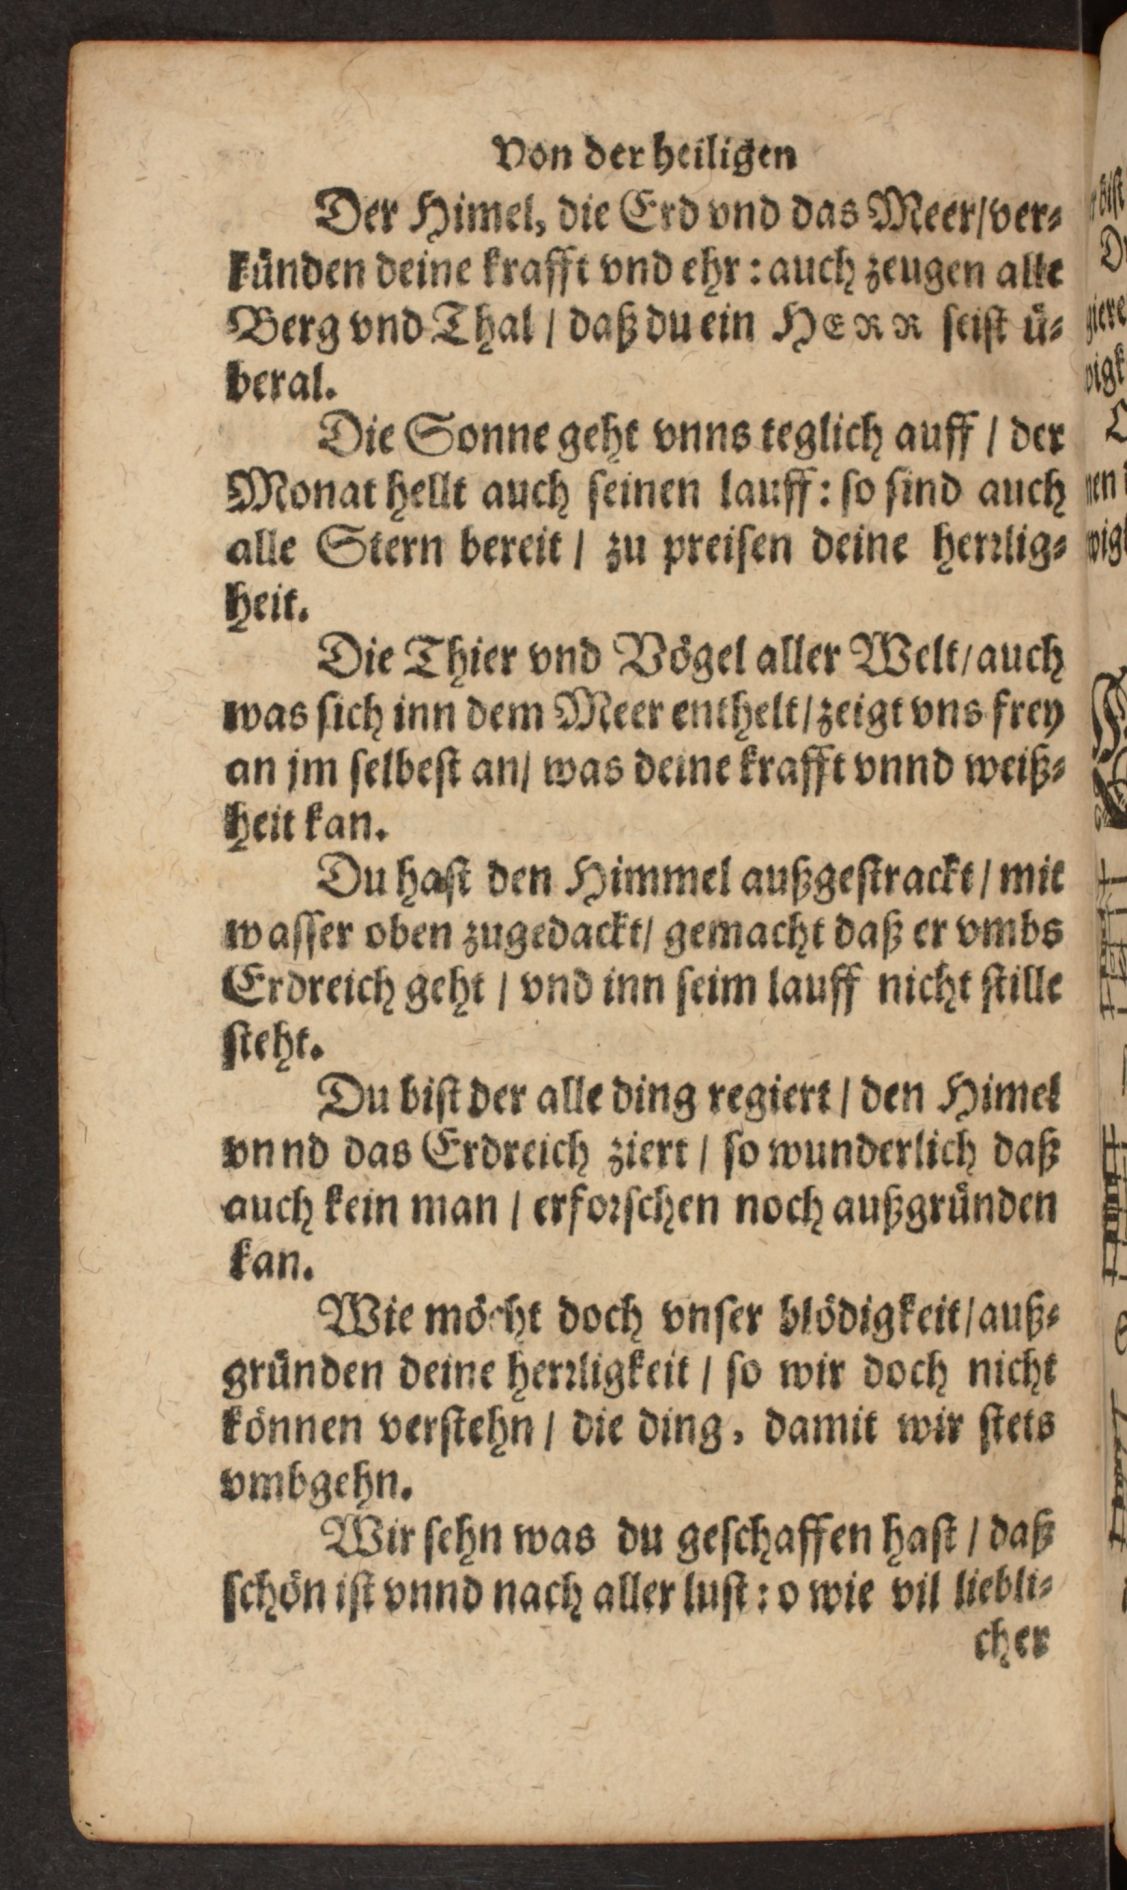 Von der heiligen
Der Himel, die Erd vnd das Meer/ver⸗
künden deine krafft vnd ehr: auch zeugen alle
Berg vnd Thal / daß du ein HERR seist ü⸗
beral.
Die Sonne geht vnns teglich auff / der
Monat hellt auch seinen lauff: so sind auch
alle Stern bereit / zu preisen deine herrlig⸗
heit.
Die Thier vnd Vögel aller Welt/auch
was sich inn dem Meer enthelt/zeigt vns frey
an jm selbest an/ was deine krafft vnnd weiß⸗
heit kan.
Du hast den Himmel außgestrackt / mit
wasser oben zugedackt/ gemacht daß er vmbs
Erdreich geht / vnd inn seim lauff nicht stille
steht.
Du bist der alle ding regiert / den Himel
vnnd das Erdreich ziert / so wunderlich daß
auch kein man / erforschen noch außgründen
kan.
Wie möcht doch vnser blödigkeit/auß⸗
gründen deine herrligkeit / so wir doch nicht
können verstehn / die ding, damit wir stets
vmbgehn.
Wir sehn was du geschaffen hast / daß
schön ist vnnd nach aller lust: o wie vil liebli⸗
cher